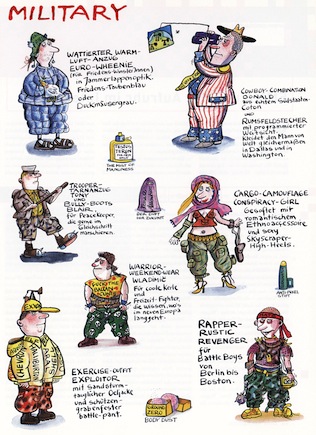 MILITARY
WATTIERTER WARM-
LUFT-ANZUG
EURO-WHEENIE
(für Friedens-Winsler/Innen)
in Jammerlappenoptik.
Friedens-Taubenblau
oder
Duckmäusergrau.
COWBOY-COMBINATION
DONALD
aus echtem Südstaaten-
Cotton
und
RUMSFELDSTECHER
mit programmierter
Weitsicht.
Kleidet den Mann von
Welt gleichermaßen
in Dallas und in
Washington.
TESTOS
TERON
THE MUST OF
MANLINESS
TROOPER-
TARNANZUG
TONY
UND
BULLY-BOOTS
BLAIR.
für Peacekeeper,
die gerne im
Gleichschritt
marschieren.
DER DUFT
DER ZUKUNFT
CARGO-CAMOUFLAGE
CONSPIRACY-GIRL
Gesoftet mit
romantischem
Ethnoaccessoire
und sexy
Skyscraper-
High-Heels.
WARRIOR-
WEEKENDWEAR
WLADIMIR
für coole Kerle
und
Freizeit-Fighter,
die wissen, wo's
im neuen Europa
langgeht.
RAPPER-
RUSTIC
REVENGER
für
Battle Boys
von
Berlin bis
Boston.
EXERCISE-OUTFIT
EXPLOITOR
mit sandsturm-
tauglicher Oeljacke
und schützen-
grabenfester
Battle-pant.
GROUND
ZERO
BODY DUST